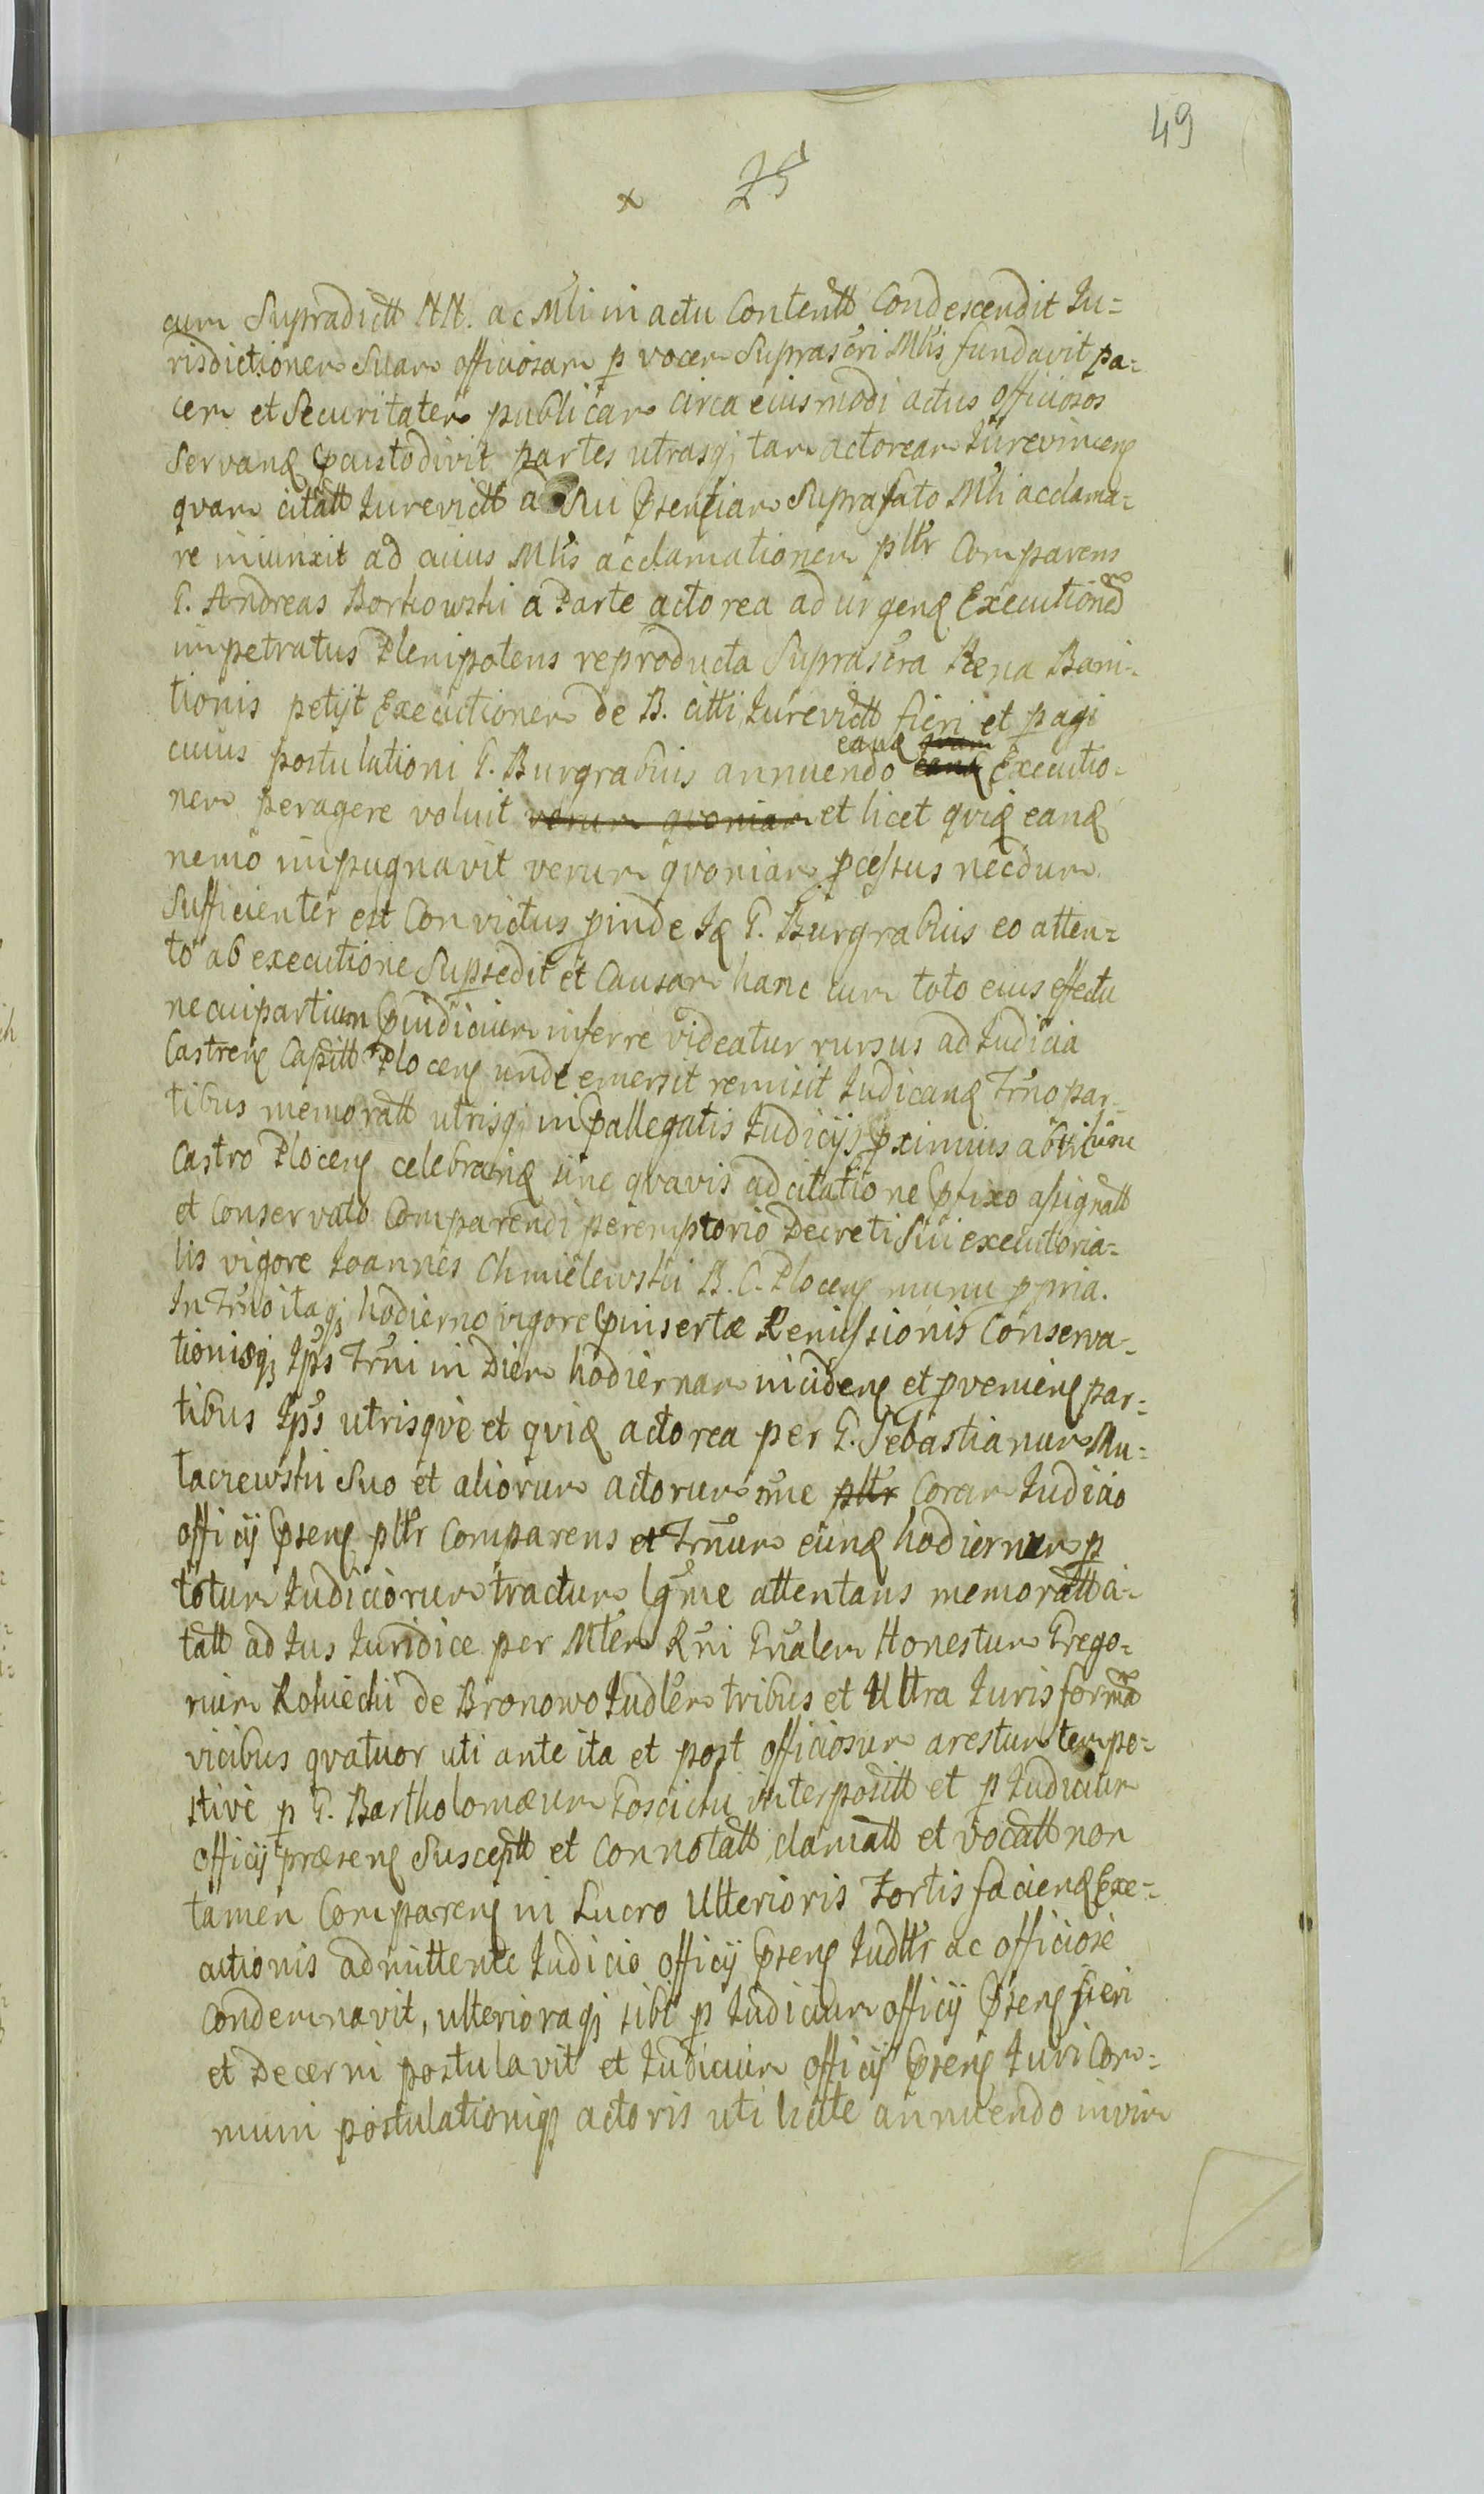 49
x 25
cum Supradictt NN. ac Mli in actu Contentt Condescendit Ju=
risdictionem Suam officiosam p vocem Suprascri Mlis fundavit pa=
cem et Securitatem publicam circa eiusmodi actus officiosos
Servand pcustodivit partes utrasq; tam actoream Jurevincen
qvam citatt Jurevictt ad Sui psentiam Suprafato Mli acclama=
re iniunxit ad cuius Mlis acclamationem pltr Comparens
G. Andreas Borkowski a Parte actorea ad urgend Executionem
impetratus Plenipotens reproducta Suprascra Paena Bani=
tionis petyt Executionem de B. citti Jurevictt fieri et pagi
cuius postulationi G. Burgrabius annuendo eand Executio=
nem peragere voluit verum qvoniam et licet qvid eand
nemo impugnavit verum qvoniam pcessus necdum
Sufficienter est Convictus pinde Id G. Burgrabius eo atten=
to ab executione Supsedit et Causam hanc cum toto eius effectu
ne cui partium pjudicium inferre videatur rursus ad Judicia
Castren Capitt Plocen unde emersit remisit Judicand Trno par=
tibus memoratt utrisq; in pallegatis Judicijs pximius ab hinc
Castro Plocen celebrand sine qvavis adcitatione pfixo assignatt
et Conservato Comparendi peremptorio Decreti Sui executoria=
lis vigore Joannes Chmielewski B. C. Plocen manu ppria.
In Trno itaq; hodierno vigore pinsertæ Remissionis Conserva=
tionisq; Ips Trni in Diem hodiernam inciden et pvenien par=
tibus Ips utrisqve et qvid actorea per G. Sebastianum Mu=
taciewski Suo et aliorum actorum nne pltr Coram Judicio
officij psen pltr Comparens et Trnum eund hodiernum p
totum Judiciorum tractum lgme attentans memoratt ci=
tatt ad Jus Juridice per Mlem Rni Gnalem Honestum Grego=
rium Rokicki de Bronowo Judlem tribus et Ultra Juris formam
vicibus qvatuor uti ante ita et post officiosum arestum tempe=
stive p G. Bartholomæum Goscicki interpositt et p Judicium
officij præsen Susceptt et Connotatt clamatt et vocatt non
tamen Comparen in Lucro Ulterioris Fortis faciend Exe=
cutionis admittente Judicio officij psen Judltr ac officiose
Condemnavit, ulterioraq; sibi p Judicium officij psen fieri
et Decerni postulavit et Judicium officij psen Juri Com=
muni postulationiq; actoris uti licite annuendo in vim